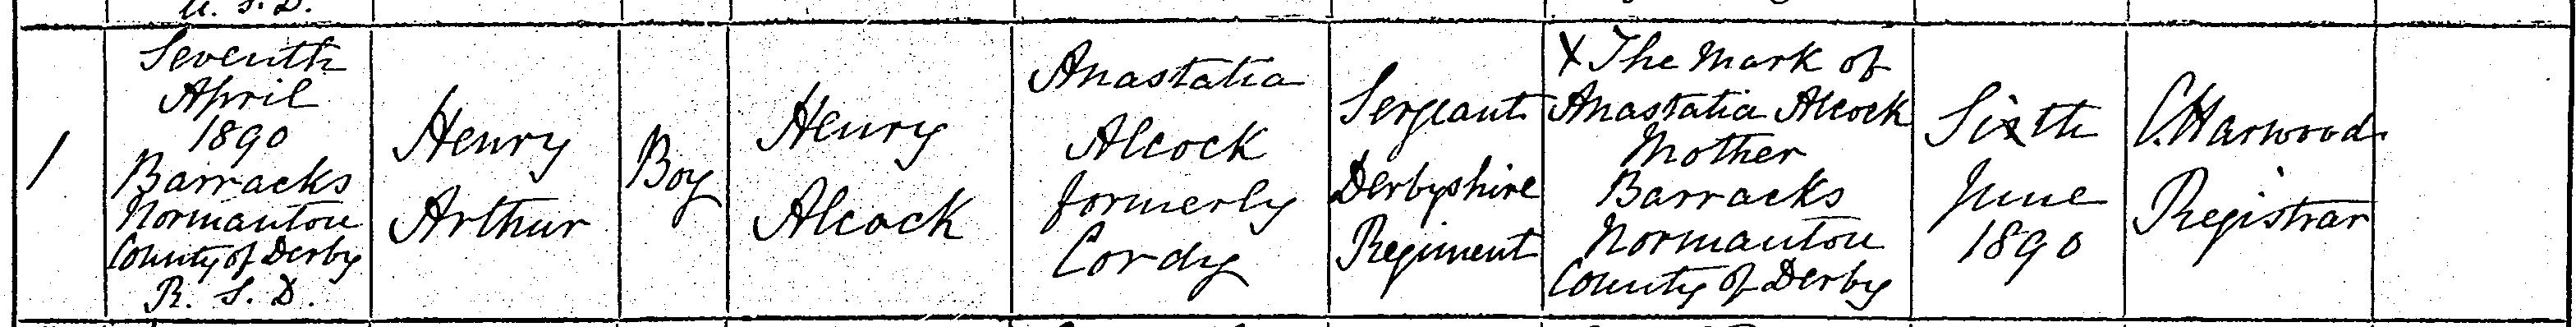 U. S. D.
1
Seventh
April
1890
Barracks
Normanton
County of Derby
R. S. D.
Henry
Arthur
Boy
Henry
Alcock
Anastatia
Alcock
formerly
Cordy
Sergeant
Derbyshire
Regiment
X The Mark of
Anastatia Alcock
Mother
Barracks
Normanton
County of Derby
Sixth
June
1890
C. Harwood
Registrar